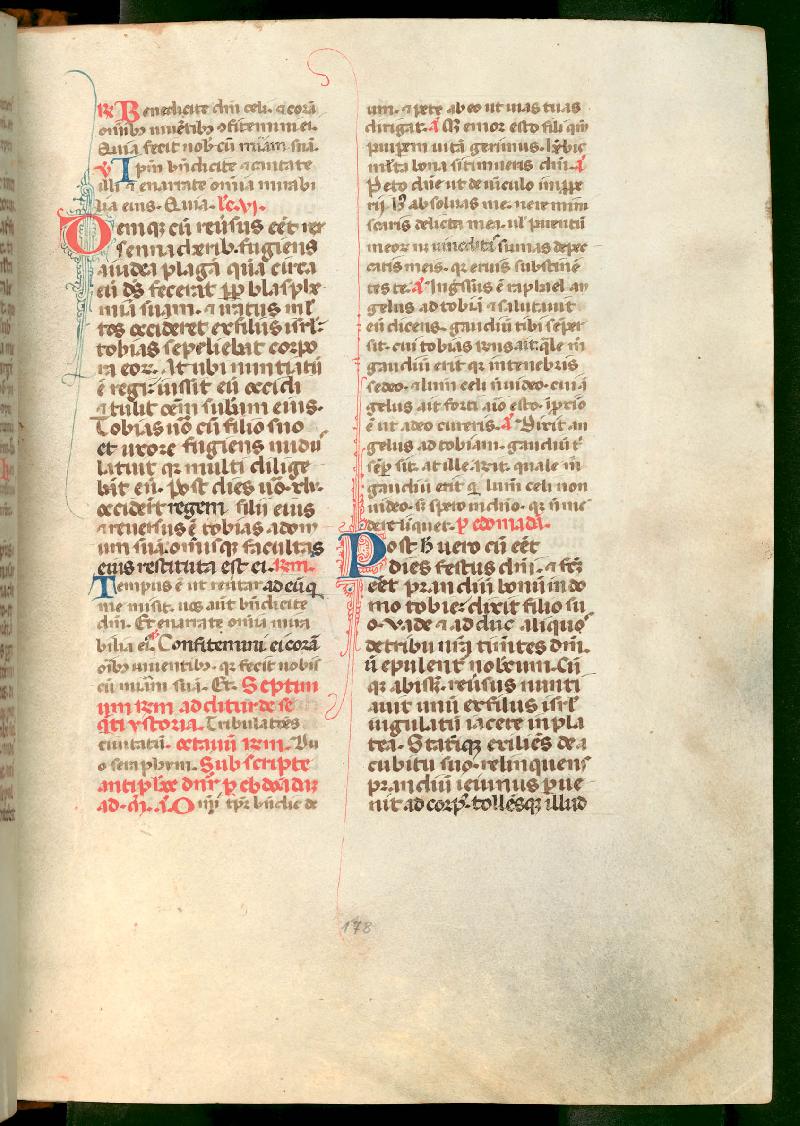 R Benedicite dm̄ celi. ⁊ corā
om̄ibꝫ uiuētibꝫ ꝯfitemini ei.
Quia fecit nob̄ cū miām suā.
V Ip̄m bn̄dicite ⁊ cantate
illi ⁊ enarrate omīa mirabi
lia eius. Quia. lc. vi.
Deniqꝫ cū reūsus eēt rex
sennacherib. fugiens
a iudea plagā quā circa
eū ds̄ fecerat ꝓp̄ blasphe
miā suam. ⁊ iratus ml̄
tos occideret ex filiis isrl̄.
tobias sepeliebat corpo
ra eoꝝ. At ubi nuntiatū
ē regi: iussit eū occidi
⁊ tulit oēm sub̄am eius.
Tobias uō cū filio suo
et uxore fugiens nudꝰ
latuit qꝛ multi dilige
bāt eū. Post dies uō. xlv.
occiderūt regem filii eius
⁊ reuersus ē tobias ad om̄
um suā. omīsqꝫ facultas
eius restituta est ei. Rm̄.
Tempus ē ut reūtar ad eū q̄
me misit. uos aūt bn̄dicite
dm̄. Et enarrate omīa mira
bilia eiꝰ. V Confitemini ei corā
oībꝫ uiuentibꝫ. qꝛ fecit nobis
cū miām suā. Et. Septim
um Rm̄ ad ditur de se
q̄ti ystoria. Tribulatōes
ciuitatū. octauū Rm̄. Du
o seraphym. Sub scripte
antiphe dn̄r p ebdōadā
ad. M̄. ⁊. A Omi tp̄r bn̄dic de
um. ⁊ pete ab eo ut uias tuas
dirigat. A Mēmor esto fili qm̄
pauꝑem uitā gerimus. hēbis
ml̄ta bona si timueris dm̄. A
Peto dn̄e ut de uīculo imꝓpe
rii hꝰ absoluas me. neue mem̄
scaris delicta mea. ul̄ parentū
meoꝝ ne uindictā sumas de pec
catis meis. qꝛ eruis sustinē
tes te. A Ingssus ē raphael an
gelus ad tobiā ⁊ salutauit
eū dicens. gaudiū tibi seper
sit. cui tobias Rn̄s ait. q̄le m̄
gaudiū erit qꝛ in tenebris
sedeo. ⁊ lum̄ celi n̄ uideo. cui ā
gelus ait forti aīo esto. ī prīo
ē ut a deo cureris. A Dixit an
gelus ad tobiam. gaudiū t̄
sēp sit. at ille. ait. quale m̄
gaudiū erit q̄ lum̄ celi non
uideo. si spero in dn̄o.
dere liquet. p edomadā.
Post h̄ uero cū eēt
dies festus dm̄. ⁊ fc̄m
eēt prandiū bonū in do
mo tobie: dixit filio su
o. uade ⁊ ad duc aliquos
de tribu nr̄a timētes dm̄.
ū epulent nobcum. Cū
qꝫ abissꝫ. reūsus nunti
auit unū ex filiis isrl̄
iugulatū iacere in pla
tea. Statiqꝫ exiliēs de a
cubitu suo. relinquens
prandiū ieiunus ꝑue
nit ad corpꝰ. tollēsqꝫ illud
178